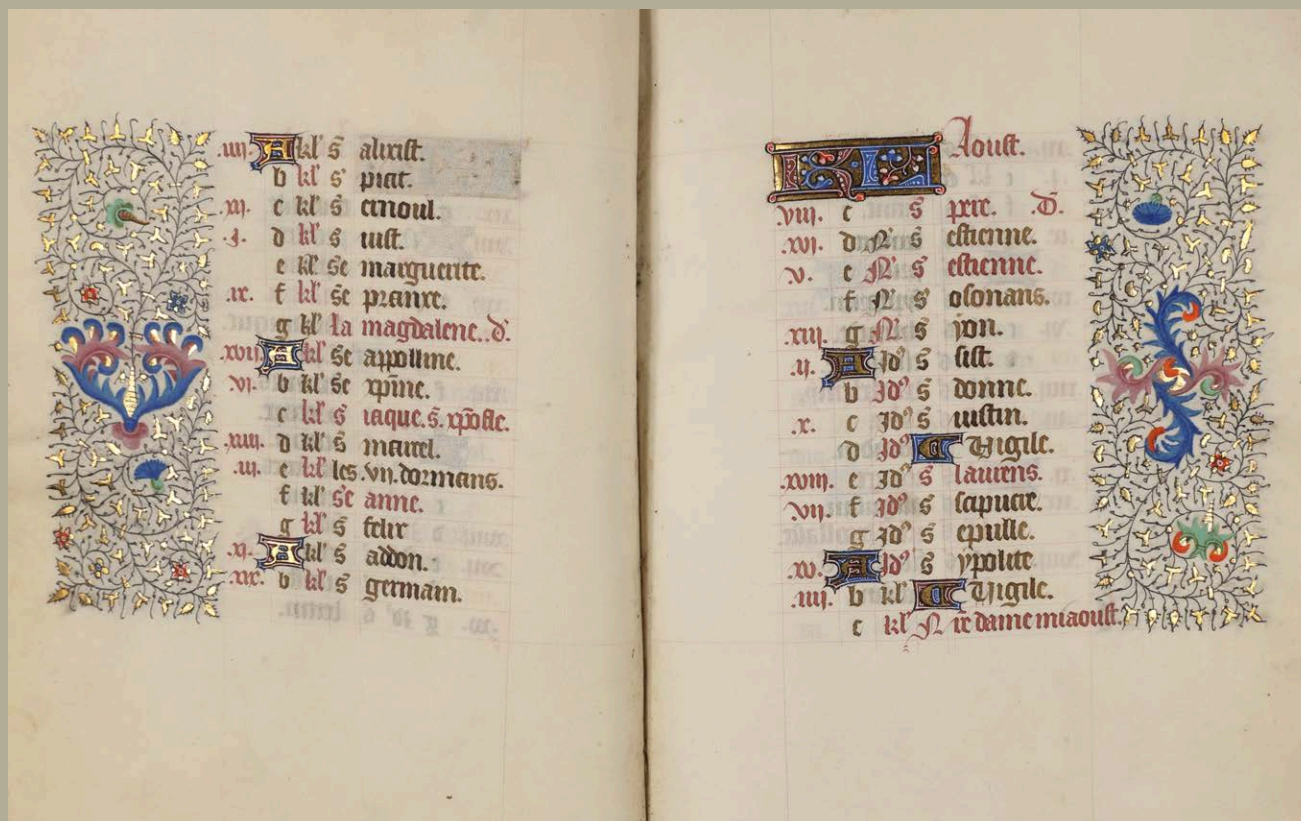 .iiij. A kl' s̄ alixist.
b kl' s' piat.
.xij. c kl' s̄ ernoul.
.j. d kl' s̄ iust.
e kl' s̄e marguerite.
.ix. f kl' s̄e praxre.
g kl' la magdalene. .d'.
.xvij. A kl' s̄e appolline.
.vj. b kl' s̄e xp̄ine.
c kl' s̄ iaque. s̄. xp̄ofle.
.xiiij. d kl' s̄ marcel.
.iij. e kl' les .vij. dormans.
f kl' s̄e anne.
g kl' s̄ felix
.xj. A kl' s̄ addon.
.xix. b kl' s̄ germain.
KL Aoust.
viij. c s̄ pere. .d'.
.xvj. d N' s̄ estienne.
.v. e N' s̄ estienne.
f N' s̄ osonans.
.xiij. g N' s̄ yon.
.ij. A Jd' s̄ sist.
b Jd' s̄ donne.
.x. c Jd' s̄ iustin.
d Jd' Vigile.
.xviij. e Jd' s̄ laurens.
.vij. f Jd' s̄
g Jd' s̄ epulle.
.xv. A Jd' s̄ ypolite.
.iiij. b kl' Vigile.
c kl' N r̄e dame miaoust.